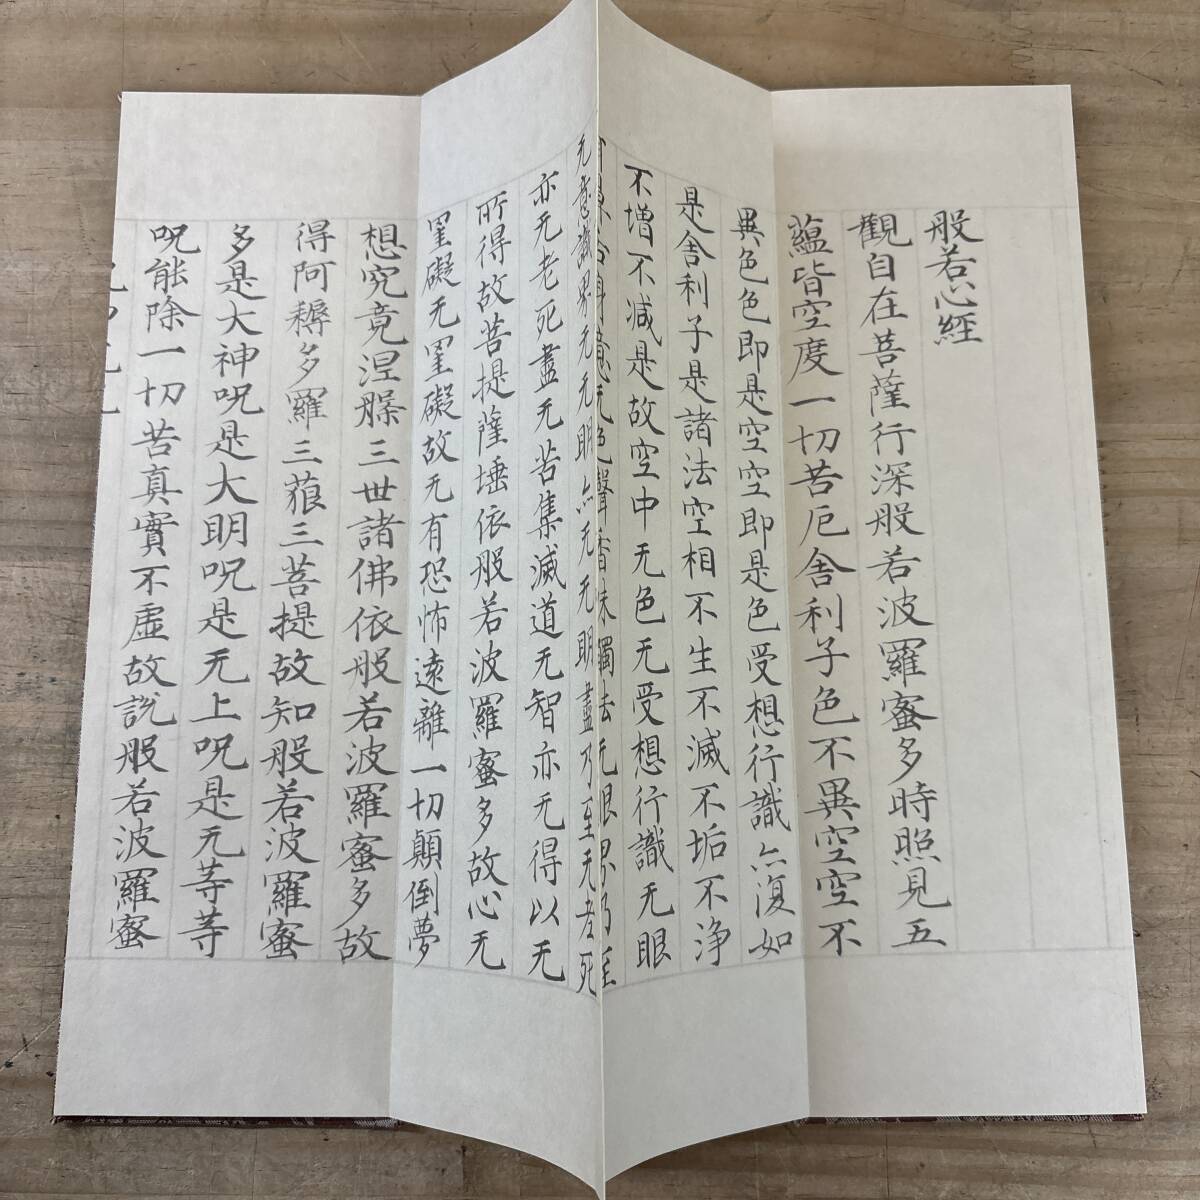 般若心經
觀自在菩薩行深般若波羅蜜多時照見五
蘊皆空度一切苦厄舍利子色不異空空不
異色色即是空空即是色受想行識亦復如
是舍利子是諸法空相不生不滅不垢不浄
不增不減是故空中无色无受想行識无眼
耳鼻舌身意无色聲香味觸法无眼界乃至
无意識界无无明亦无无明盡乃至无老死
亦无老死盡无苦集滅道无智亦无得以无
所得故菩提薩埵依般若波羅蜜多故心无
罣礙无罣礙故无有恐怖遠離一切顛倒夢
想究竟涅槃三世諸佛依般若波羅蜜多故
得阿耨多羅三藐三菩提故知般若波羅蜜
多是大神呪是大明呪是无上呪是无等等
呪能除一切苦真實不虛故説般若波羅蜜